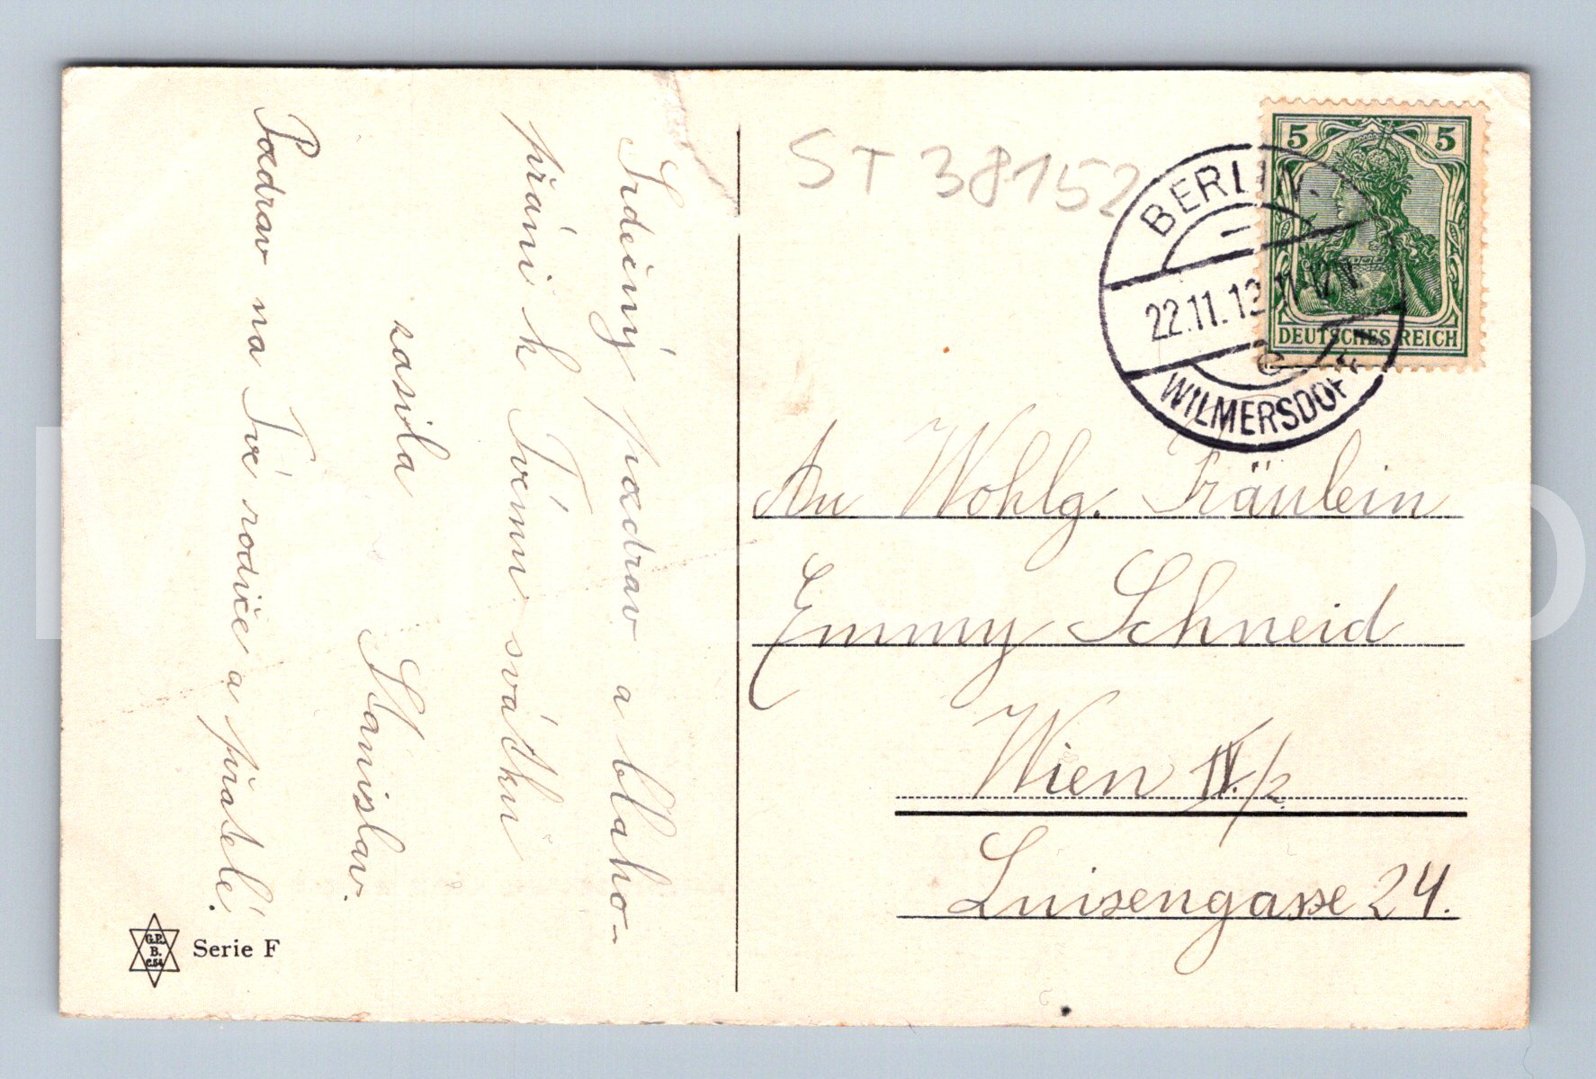 Srdečný pozdrav a blaho-
přání k Tvému svátku
zasílá
Stanislav.
Pozdrav na Tvé rodiče a přátelé!
ST 38152
5 5
DEUTSCHES REICH
BERLIN.
22.11.12
WILMERSDORF
e
An Wohlg. Fräulein
Emmy Schneid
Wien IV./2
Luisengasse 24.
G.P.
B.
C.54
Serie F